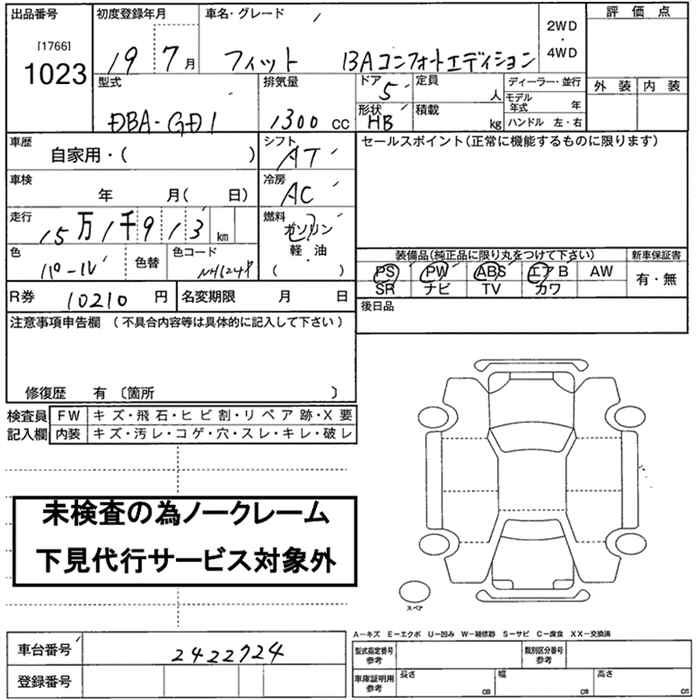 出品番号 初度登録年月 車名・グレード 2WD ・ 4WD 評価点
[1766]
1023 19 7月 フィット 13Aコンフォートエディション 外装 内装
型式 排気量 ドア 5 定員 人 ディーラー・並行
DBA-GD1 1300 CC 形状 HB 積載 kg モデル年式 年
ハンドル 左・右
車歴 自家用・( ) シフト AT セールスポイント(正常に機能するものに限ります)
車検 年 月( 日) 冷房 AC
走行 15万1千913 km 燃料 ガソリン
軽・油
( ・ )
色 パール 色替 色コード NH624P 装備品(純正品に限り丸をつけて下さい) 新車保証書
PS PW ABS エアB AW 有・無
SR ナビ TV カワ
R券 10210 円 名変期限 月 日 後日品
注意事項申告欄 (不具合内容等は具体的に記入して下さい)
修復歴 有 〔箇所 〕
検査員 FW キズ・飛石・ヒビ割・リペア跡・X要
記入欄 内装 キズ・汚レ・コゲ・穴・スレ・キレ・破レ
未検査の為ノークレーム
下見代行サービス対象外
スペア
A-キズ E-エクボ U-凹み W-補修跡 S-サビ C-腐食 XX-交換済
車台番号 2422724 型式指定番号 参考 類別区分番号 参考
登録番号 車庫証明用 参考 長さ cm 幅 cm 高さ cm